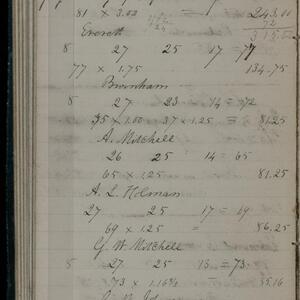 81 × 3.00 243.00
72
Everett 315.00
8 27 25 17 = 77
77 × 1.75 134.75
Burnham
8 27 23 14 = 72
35 × 1.00 37 × 1.25 = 81.25
A. Mitchell
26 25 14 = 65
65 × 1.25 81.25
A. L. Holman
27 25 17 = 69
69 × 1.25 = 86.25
G. W. Mitchell
8 27 25 13 = 73
73 × 1.16⅔ 85.16